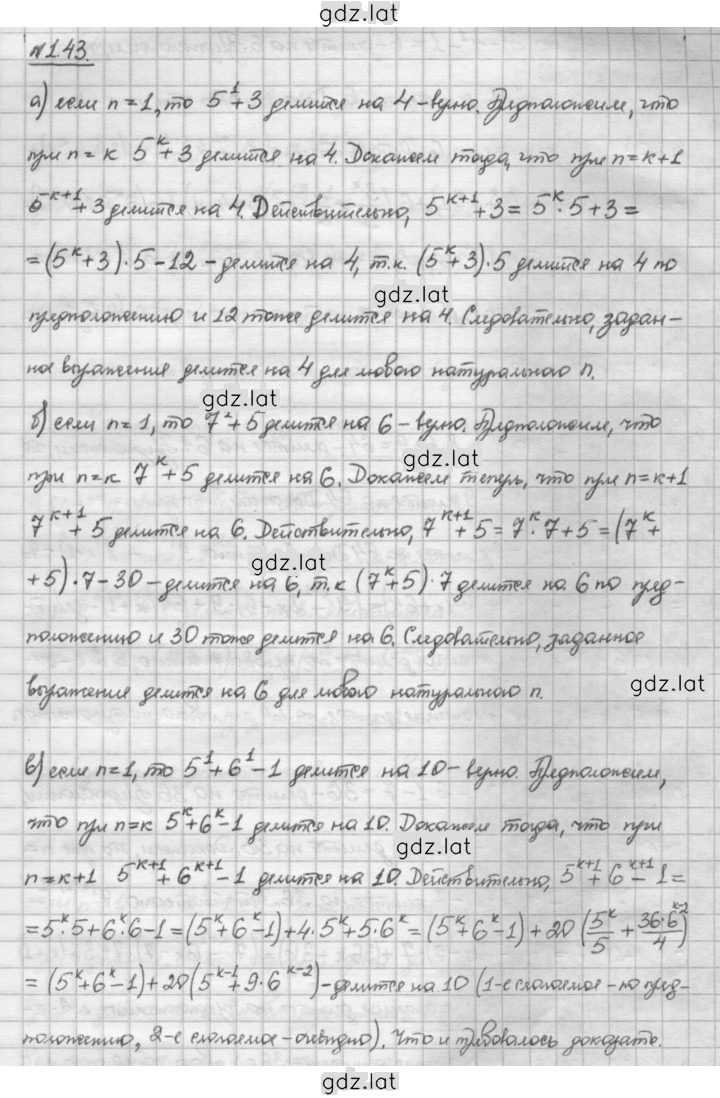 gdz.lat
№1.43.
а) если n=1, то 5¹+3 делится на 4 – верно. Предположим, что
при n=k 5^k+3 делится на 4. Докажем тогда, что при n=k+1
5^{k+1}+3 делится на 4. Действительно, 5^{k+1}+3 = 5^k·5+3 =
= (5^k+3)·5-12 – делится на 4, т.к. (5^k+3)·5 делится на 4 по
gdz.lat
предположению и 12 тоже делится на 4. Следовательно, задан-
ное выражение делится на 4 для любого натурального n.
gdz.lat
б) если n=1, то 7¹+5 делится на 6 – верно. Предположим, что
gdz.lat
при n=k 7^k+5 делится на 6. Докажем теперь, что при n=k+1
7^{k+1}+5 делится на 6. Действительно, 7^{k+1}+5 = 7^k·7+5 = (7^k+
gdz.lat
+5)·7-30 – делится на 6, т.к (7^k+5)·7 делится на 6 по пред-
положению и 30 тоже делится на 6. Следовательно, заданное
выражение делится на 6 для любого натурального n.
gdz.lat
в) если n=1, то 5¹+6¹-1 делится на 10 – верно. Предположим,
что при n=k 5^k+6^k-1 делится на 10. Докажем тогда, что при
gdz.lat
n=k+1 5^{k+1}+6^{k+1}-1 делится на 10. Действительно, 5^{k+1}+6^{k+1}-1 =
= 5^k·5+6^k·6-1 = (5^k+6^k-1)+4·5^k+5·6^k = (5^k+6^k-1)+20(5^k/5+36·6^{k-2}/4)
= (5^k+6^k-1)+20(5^{k-1}+9·6^{k-2}) – делится на 10 (1-е слагаемое – по пред-
положению, 2-е слагаемое – очевидно). Что и требовалось доказать.
gdz.lat